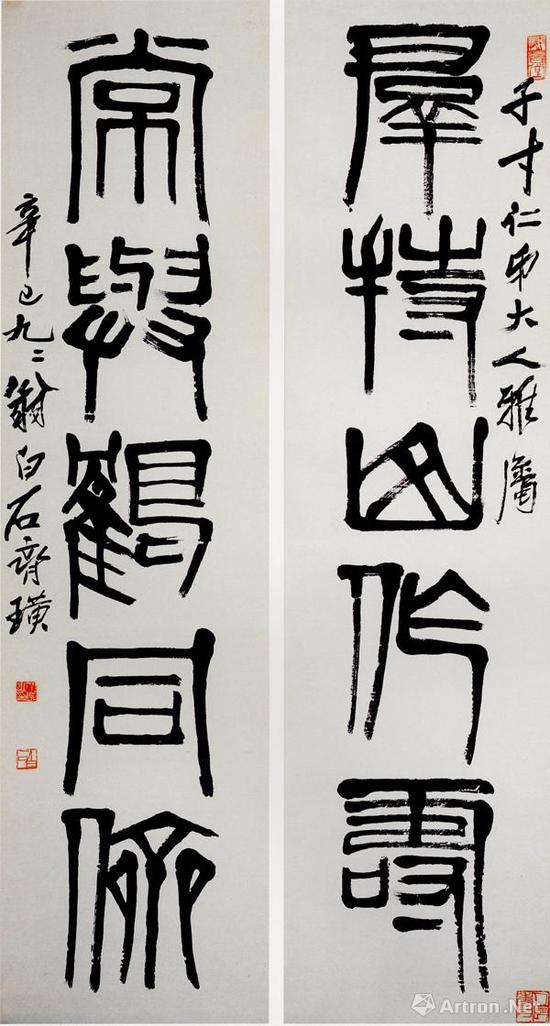 子才仁弟大人雅屬
羣持山作壽
常與鶴同儕
辛巳九二翁白石齊璜
Artron.Net